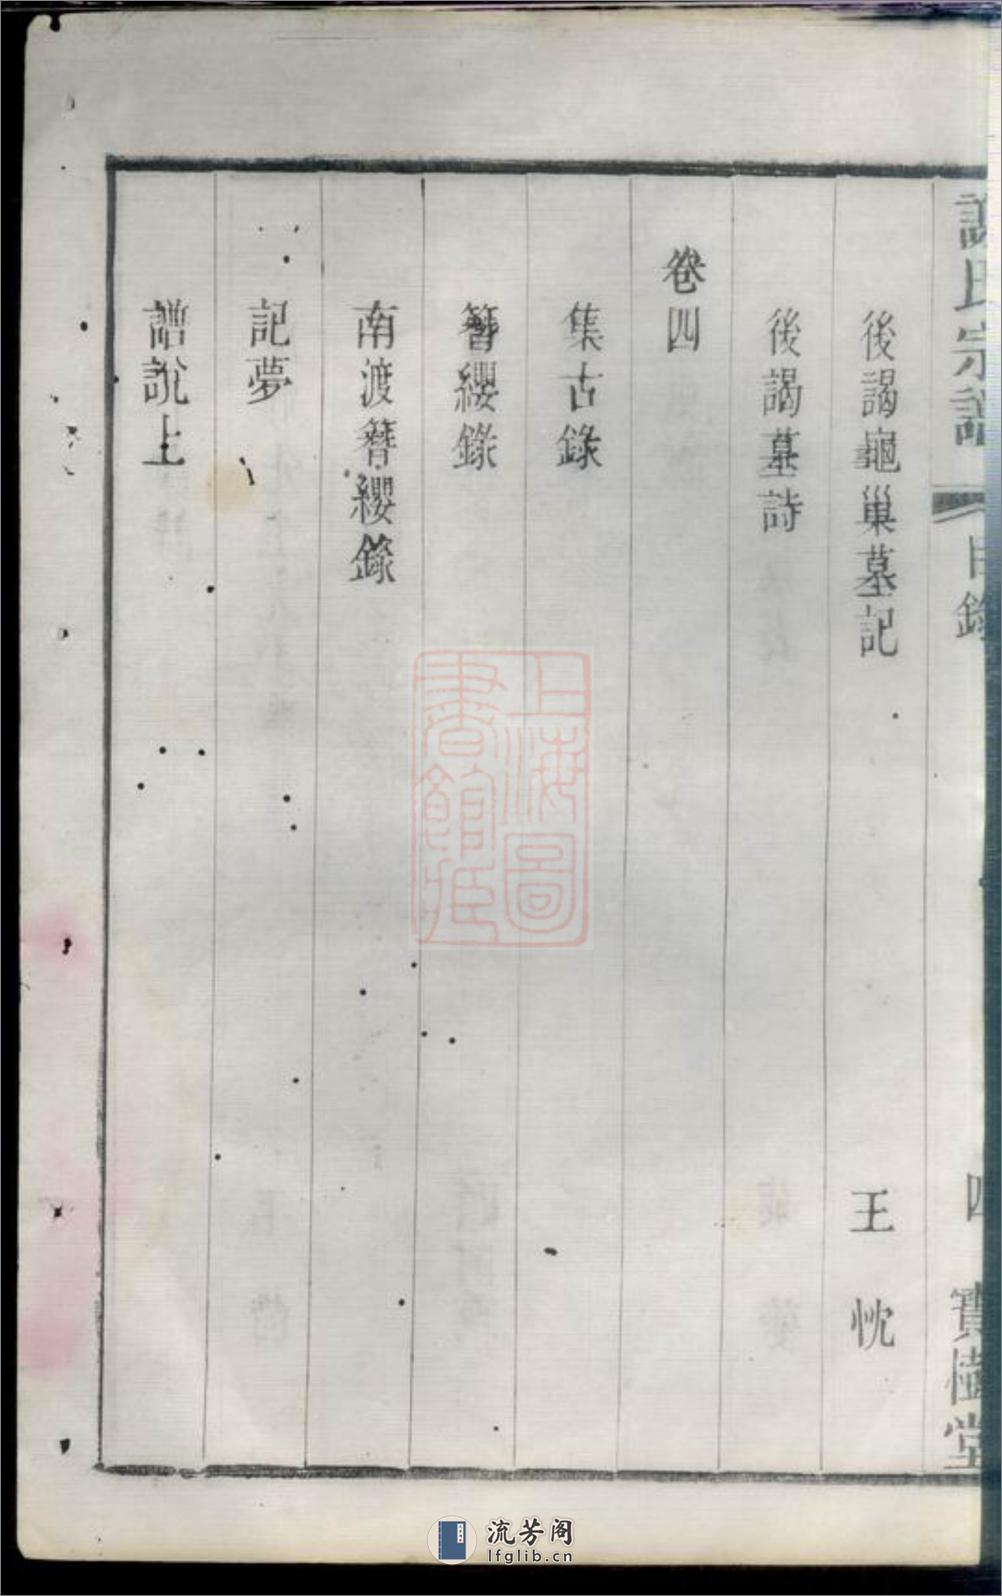 謝氏宗譜 目錄 四 寶樹堂
後謁龜巢墓記 王忱
後謁墓詩
卷四
集古錄
簪纓錄
南渡簪纓錄
記夢
譜說上
上海圖書館藏
流芳阁
lfglib.cn